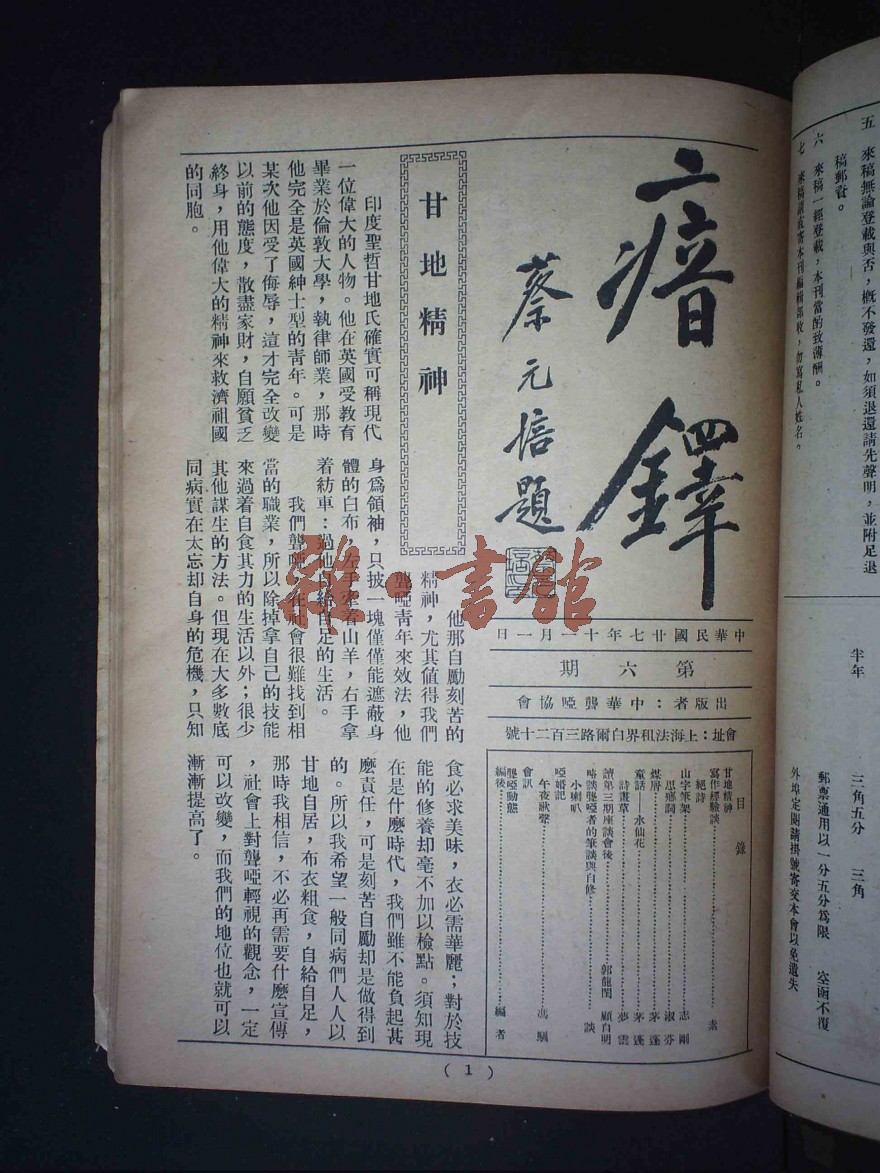 瘖鐸
蔡元培題
中華民國廿七年十一月一日
第六期
出版者：中華聾啞協會
會址：上海法租界白爾路三百二十號
目錄
甘地精神
寫作經驗談……素
絕詩
山字筆架……志剛
思鄉調……淑芬
煤屑……茅蓬
童話——水仙花……茅蓬
詩畫草……夢雲
讀第三期座談會後……郭龍閏 顧自明
略談聾啞者的筆談與自修……談
小喇叭
啞婚記
午夜歌聲……馮颿
會訊
聾啞動態
編後……編者
甘地精神
印度聖哲甘地氏確實可稱現代
一位偉大的人物。他在英國受教育
畢業於倫敦大學，執律師業，那時
他完全是英國紳士型的青年。可是
某次他因受了侮辱，這才完全改變
以前的態度，散盡家財，自願貧乏
終身，用他偉大的精神來救濟祖國
的同胞。
他那自勵刻苦的
精神，尤其値得我們
聾啞青年來效法，他
身爲領袖，只披一塊僅僅能遮蔽身
體的白布，左手牽着山羊，右手拿
着紡車：過他自給自足的生活。
我們聾啞，在社會很難找到相
當的職業，所以除掉拿自己的技能
來過着自食其力的生活以外；很少
其他謀生的方法。但現在大多數底
同病實在太忘却自身的危機，只知
食必求美味，衣必需華麗；對於技
能的修養却毫不加以檢點。須知現
在是什麽時代，我們雖不能負起甚
麽責任，可是刻苦自勵却是做得到
的。所以我希望一般同病們人人以
甘地自居，布衣粗食，自給自足，
那時我相信，不必再需要什麽宣傳
，社會上對聾啞輕視的觀念，一定
可以改變，而我們的地位也就可以
漸漸提高了。
( 1 )
五 來稿無論登載與否，概不發還，如須退還請先聲明，並附足退
稿郵資。
六 來稿一經登載，本刊當酌致薄酬。
七 來稿請直寄本刊編輯部收，勿寫私人姓名。
半年 三角五分 三角
郵票通用以一分五分爲限 空函不復
外埠定閱請掛號寄交本會以免遺失
雜·書館